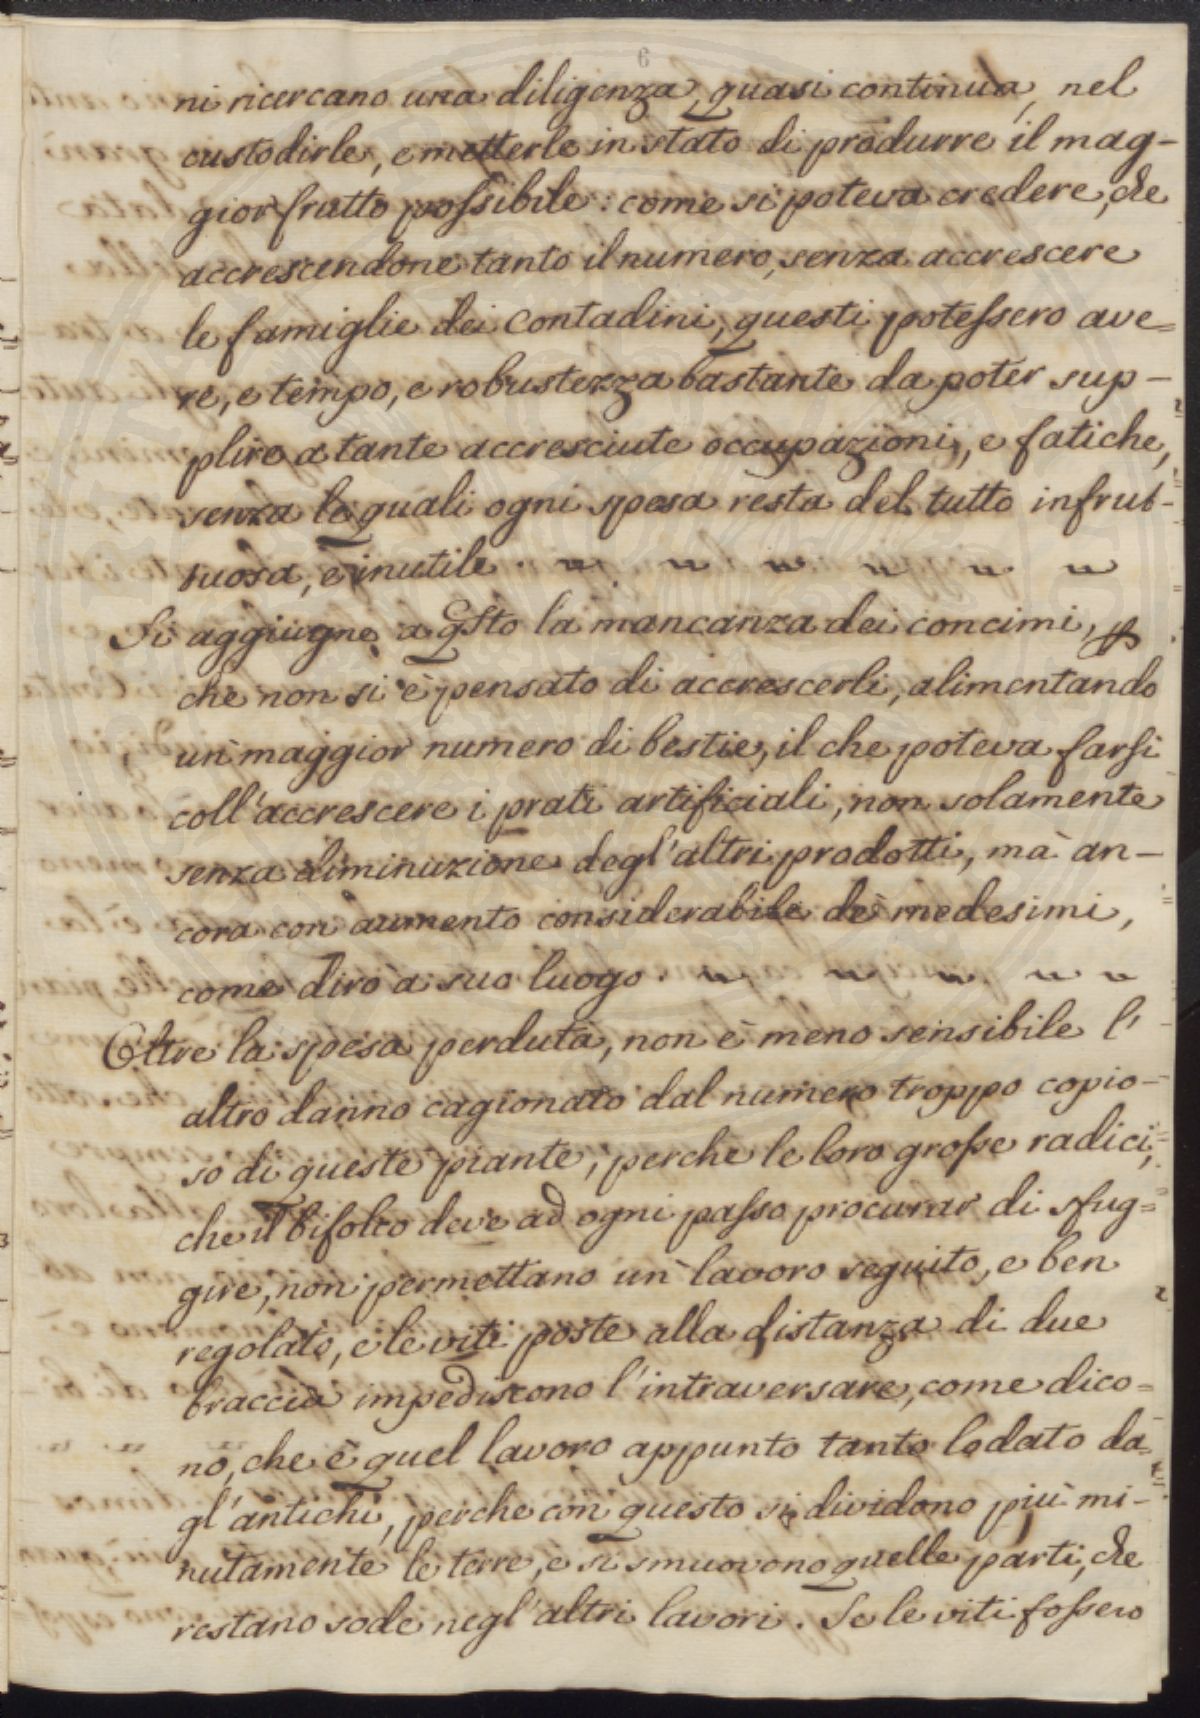 6
ni ricercano una diligenza quasi continua, nel
custodirle, e metterle in stato di produrre il mag-
gior frutto possibile: come si poteva credere, che
accrescendone tanto il numero, senza accrescere
le famiglie dei Contadini, questi potessero ave=
re, e tempo, e robustezza bastante da poter sup-
plire a tante accresciute occupazioni, e fatiche,
senza le quali ogni spesa resta del tutto infrut-
tuosa, e inutile.
Si aggiugne a qsto la mancanza dei concimi, p
che non si è pensato di accrescerli, alimentando
un maggior numero di bestie, il che poteva farsi
coll'accrescere i prati artificiali, non solamente
senza diminuzione degl'altri prodotti, mà an-
cora con aumento considerabile de' medesimi,
come dirò a suo luogo.
Oltre la spesa perduta, non è meno sensibile l'
altro danno cagionato dal numero troppo copio-
so di queste piante, perche le loro grosse radici,
che il bifolco deve ad ogni passo procurar di sfug=
gire, non permettano un lavoro seguito, e ben
regolato, e le viti poste alla distanza di due
braccia impediscono l'intraversare, come dico=
no, che è quel lavoro appunto tanto lodato da=
gl'antichi, perche con questo si dividono più mi-
nutamente le terre, e si smuovono quelle parti, che
restano sode negl'altri lavori. Se le viti fossero